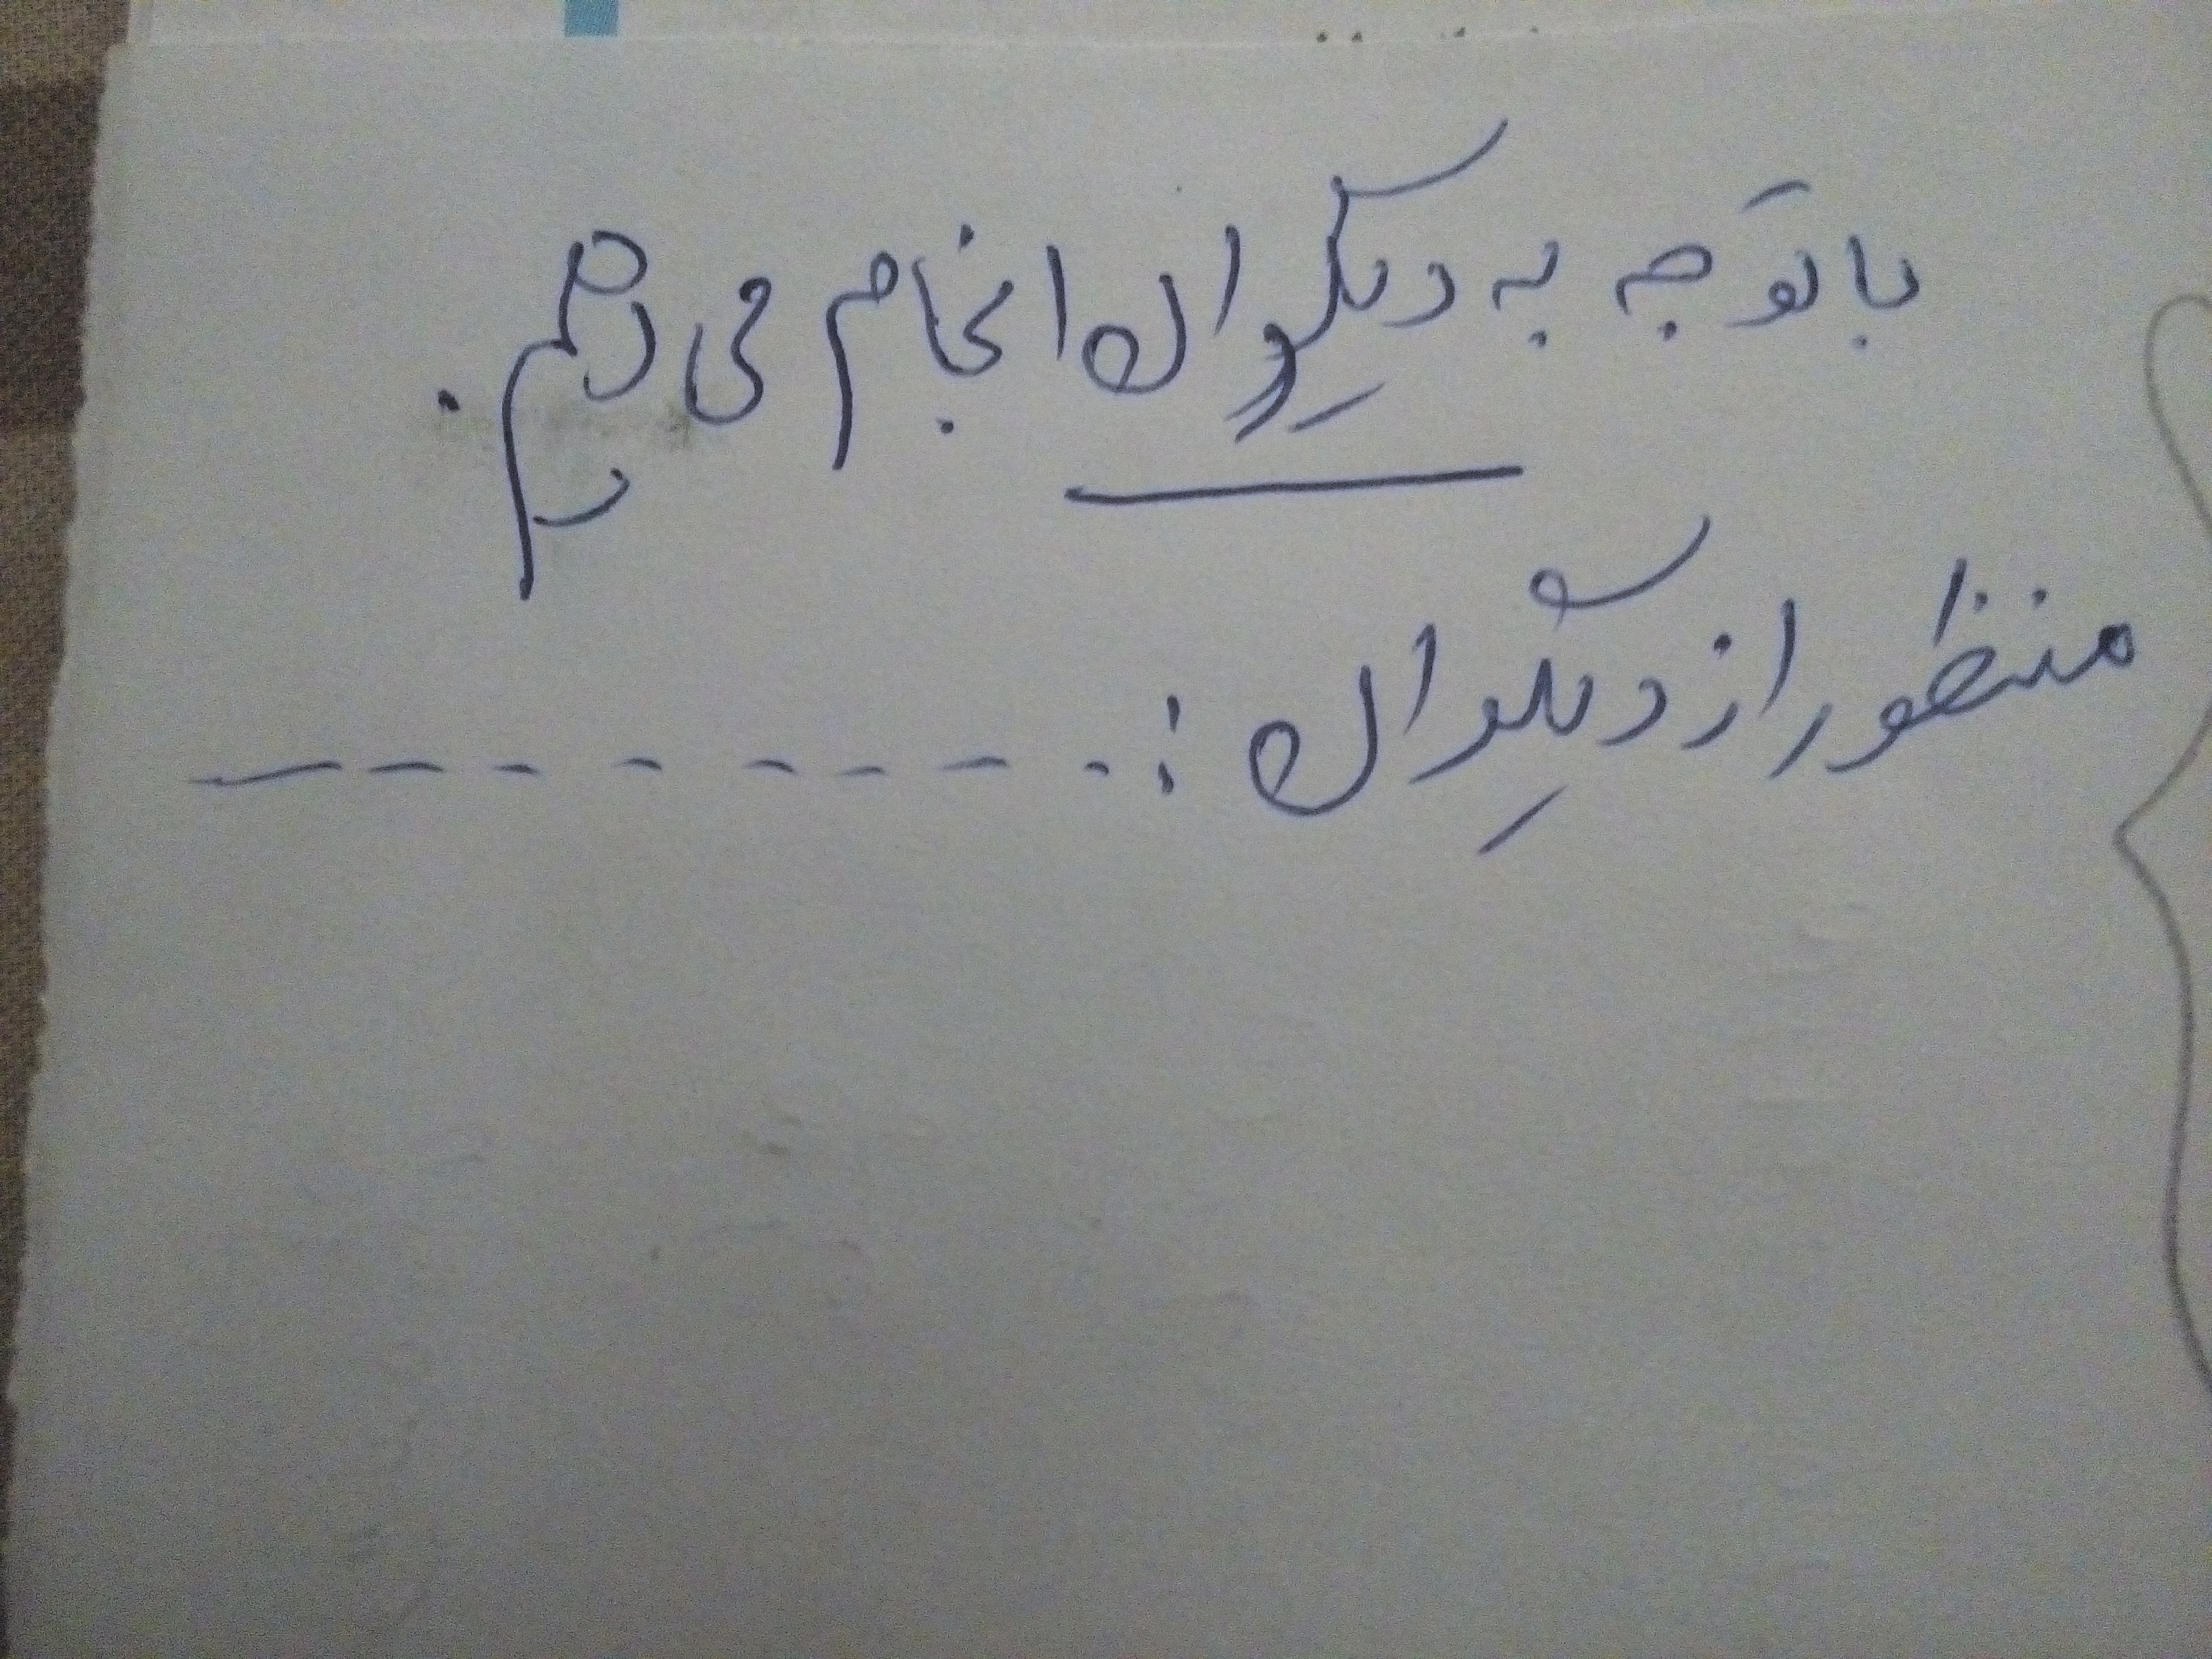 با توجه به دیکِوال انجام می دهیم.
منظور از دیکِوال : - - - - - - - -